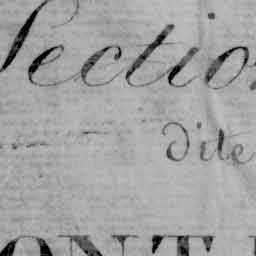 Section
dite
ONT